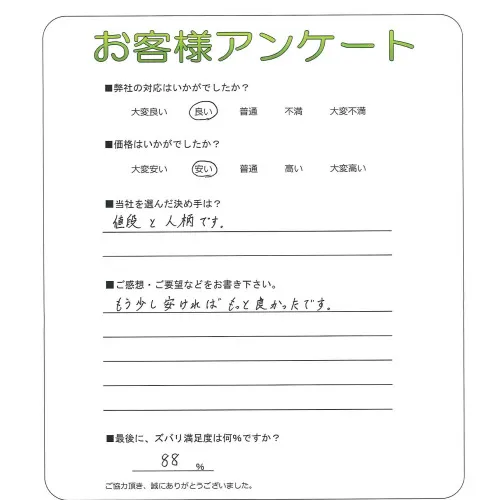 お客様アンケート
■弊社の対応はいかがでしたか？
大変良い 良い 普通 不満 大変不満
■価格はいかがでしたか？
大変安い 安い 普通 高い 大変高い
■当社を選んだ決め手は？
値段と人柄です。
■ご感想・ご要望などをお書き下さい。
もう少し安ければもっと良かったです。
■最後に、ズバリ満足度は何%ですか？
88 %
ご協力頂き、誠にありがとうございました。